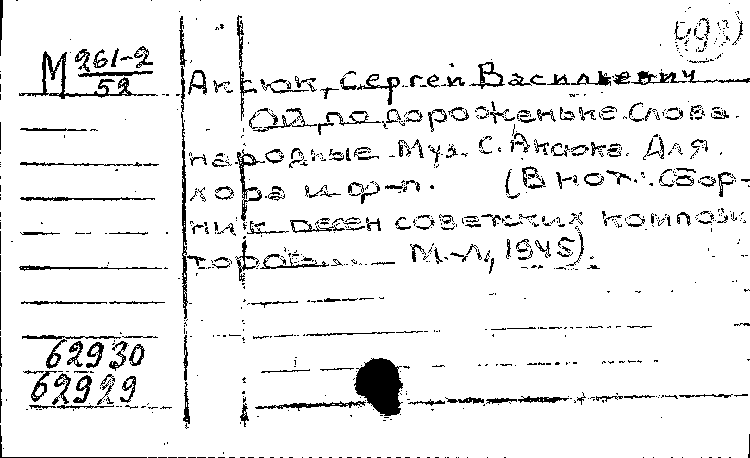 498)
М 261-2
52
Аксюк, Сергей Васильевич
Ой, по дороженьке. Слова
народные. Муз. С. Аксюка. Для
хора и ф-п. (В нот.: Сбор-
ник песен советских компози
торов.... М.-Л., 1945).
62930
62929